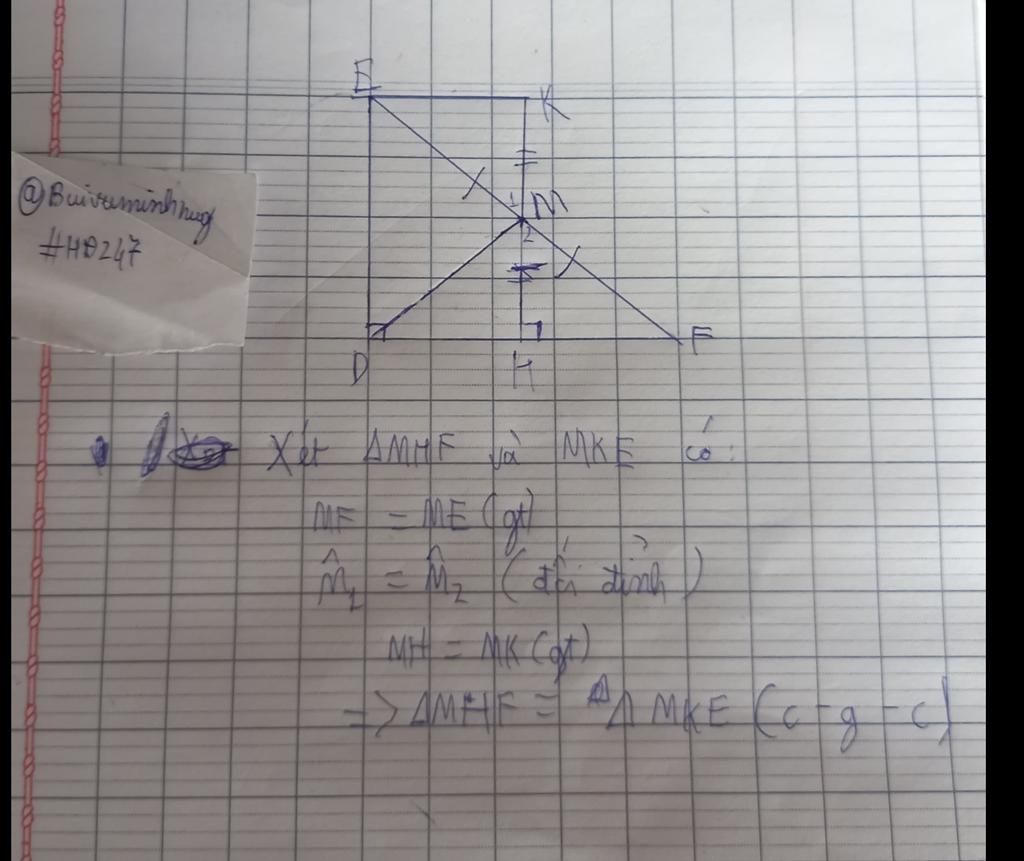 E
K
@Buivuminhhug
#HĐ247
1
M
2
D
H
F
Xét ΔMHF và MKE có:
MF = ME (gt)
M̂1 = M̂2 (đối đỉnh)
MH = MK (gt)
=> ΔMHF = Δ MKE (c-g-c)